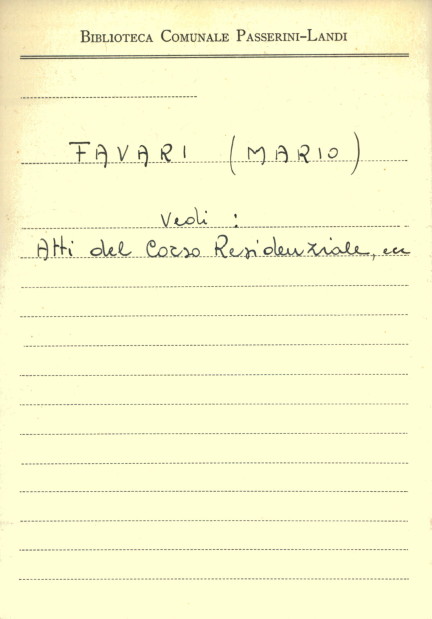 BIBLIOTECA COMUNALE PASSERINI-LANDI
FAVARI (MARIO)
Vedi :
Atti del Corso Residenziale,